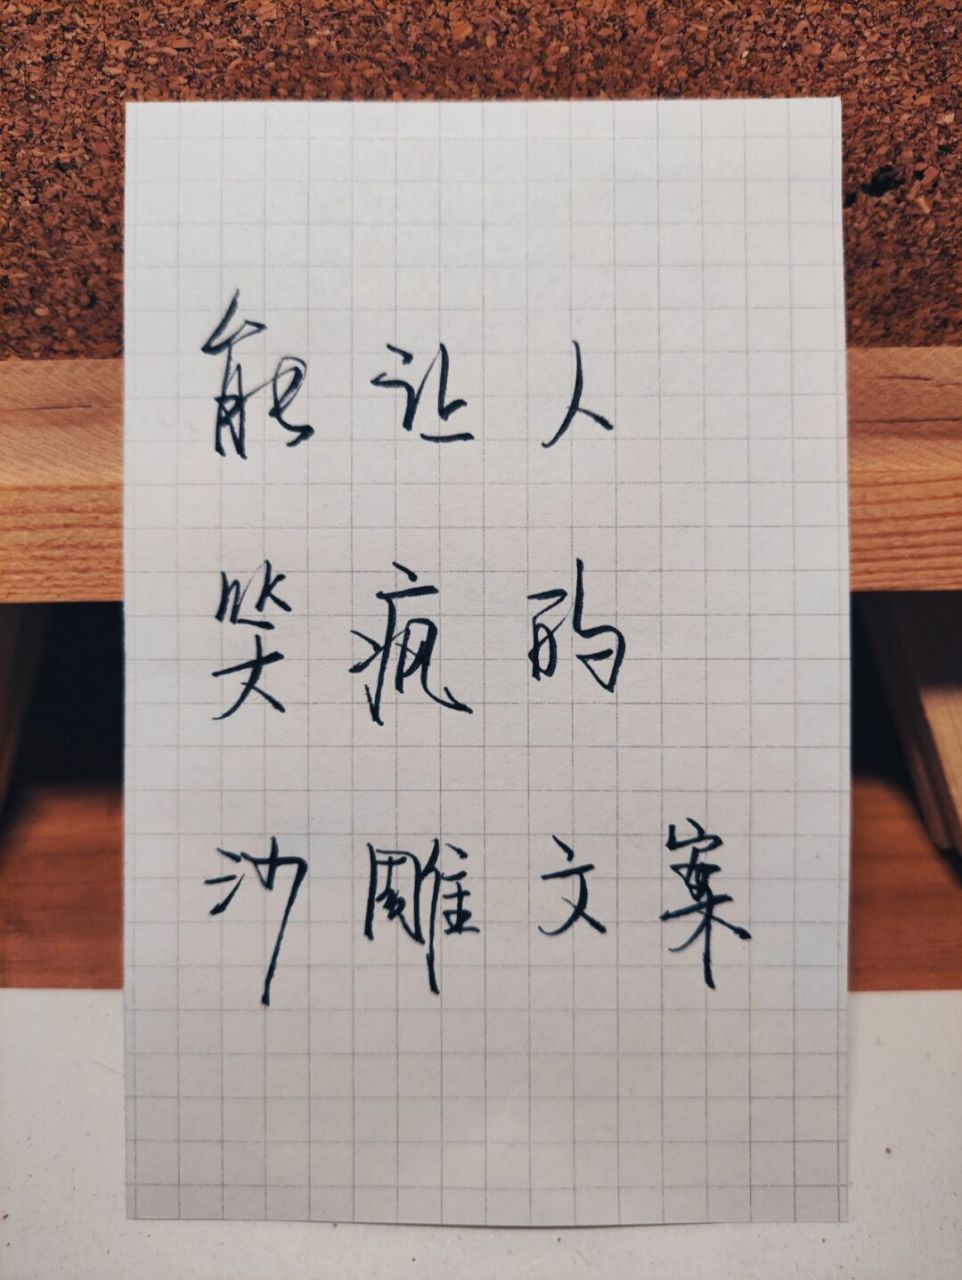 能让人
笑疯的
沙雕文案